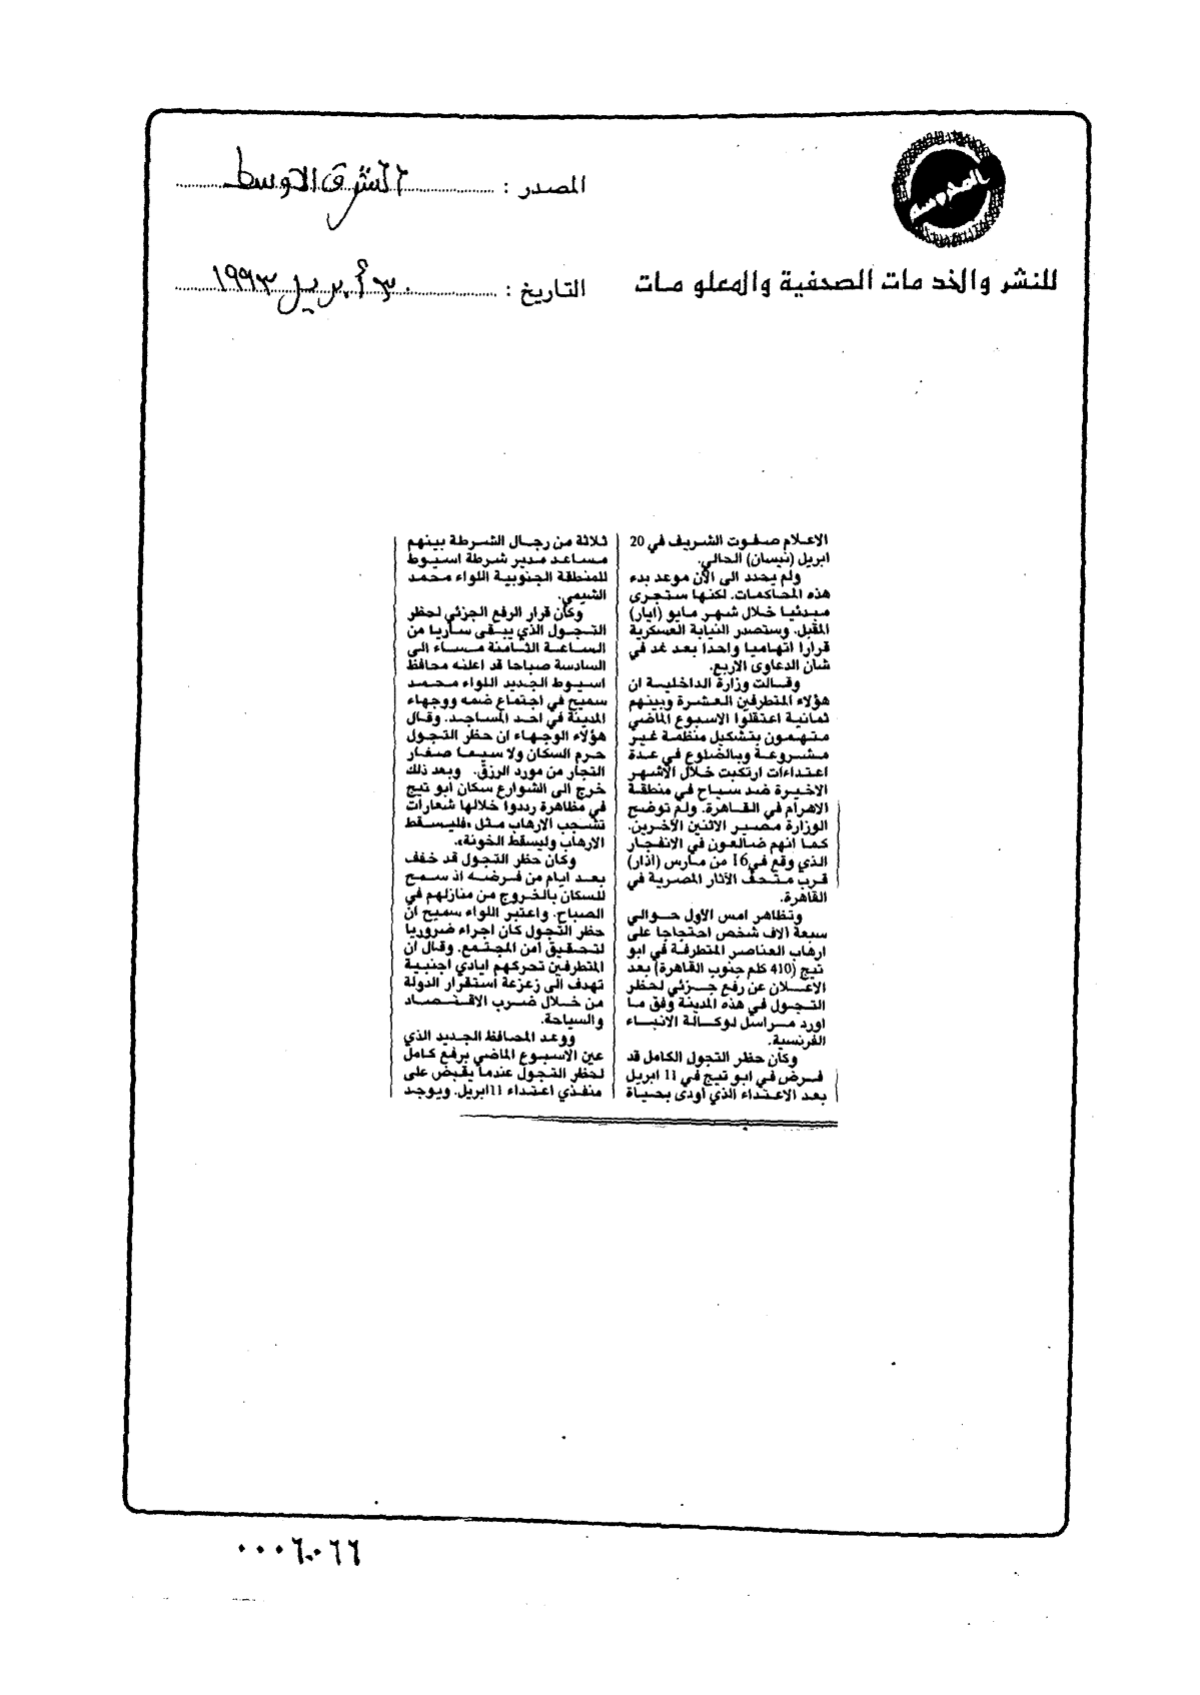 المصدر : الشرق الاوسط
للنشر والخدمات الصحفية والمعلومات
التاريخ : ٣٠ أبريل ١٩٩٣
الاعلام صفوت الشريف في 20
ابريل (نيسان) الحالي.
ولم يحدد الى الآن موعد بدء
هذه المحاكمات. لكنها ستجرى
مبدئيا خلال شهر مايو (ايار)
المقبل. وستصدر النيابة العسكرية
قرارا اتهاميا واحدا بعد غد في
شان الدعاوى الاربع.
وقالت وزارة الداخلية ان
هؤلاء المتطرفين العشرة وبينهم
ثمانية اعتقلوا الاسبوع الماضي
متهمون بتشكيل منظمة غير
مشروعة وبالضلوع في عدة
اعتداءات ارتكبت خلال الاشهر
الاخيرة ضد سياح في منطقة
الاهرام في القاهرة. ولم توضح
الوزارة مصير الاثنين الآخرين.
كما انهم ضالعون في الانفجار
الذي وقع في 16 من مارس (اذار)
قرب متحف الآثار المصرية في
القاهرة.
وتظاهر امس الاول حوالي
سبعة الاف شخص احتجاجا على
ارهاب العناصر المتطرفة في ابو
تيج (410 كلم جنوب القاهرة) بعد
الاعلان عن رفع جزئي لحظر
التجول في هذه المدينة وفق ما
اورد مراسل لوكالة الانباء
الفرنسية.
وكان حظر التجول الكامل قد
فرض في ابو تيج في 11 ابريل
بعد الاعتداء الذي اودى بحياة
ثلاثة من رجال الشرطة بينهم
مساعد مدير شرطة اسيوط
للمنطقة الجنوبية اللواء محمد
الشيمي.
وكان قرار الرفع الجزئي لحظر
التجول الذي يبقى ساريا من
الساعة الثامنة مساء الى
السادسة صباحا قد اعلنه محافظ
اسيوط الجديد اللواء محمد
سميح في اجتماع ضمه ووجهاء
المدينة في احد المساجد. وقال
هؤلاء الوجهاء ان حظر التجول
حرم السكان ولا سيما صغار
التجار من مورد الرزق. وبعد ذلك
خرج الى الشوارع سكان ابو تيج
في مظاهرة رددوا خلالها شعارات
تشجب الارهاب مثل «فليسقط
الارهاب وليسقط الخونة».
وكان حظر التجول قد خفف
بعد ايام من فرضه اذ سمح
للسكان بالخروج من منازلهم في
الصباح. واعتبر اللواء سميح ان
حظر التجول كان اجراء ضروريا
لتحقيق أمن المجتمع. وقال ان
المتطرفين تحركهم ايادي اجنبية
تهدف الى زعزعة استقرار الدولة
من خلال ضرب الاقتصاد
والسياحة.
ووعد المحافظ الجديد الذي
عين الاسبوع الماضي برفع كامل
لحظر التجول عندما يقبض على
منفذي اعتداء 11 ابريل. ويوجد
٠٠٠٦٠٦٦